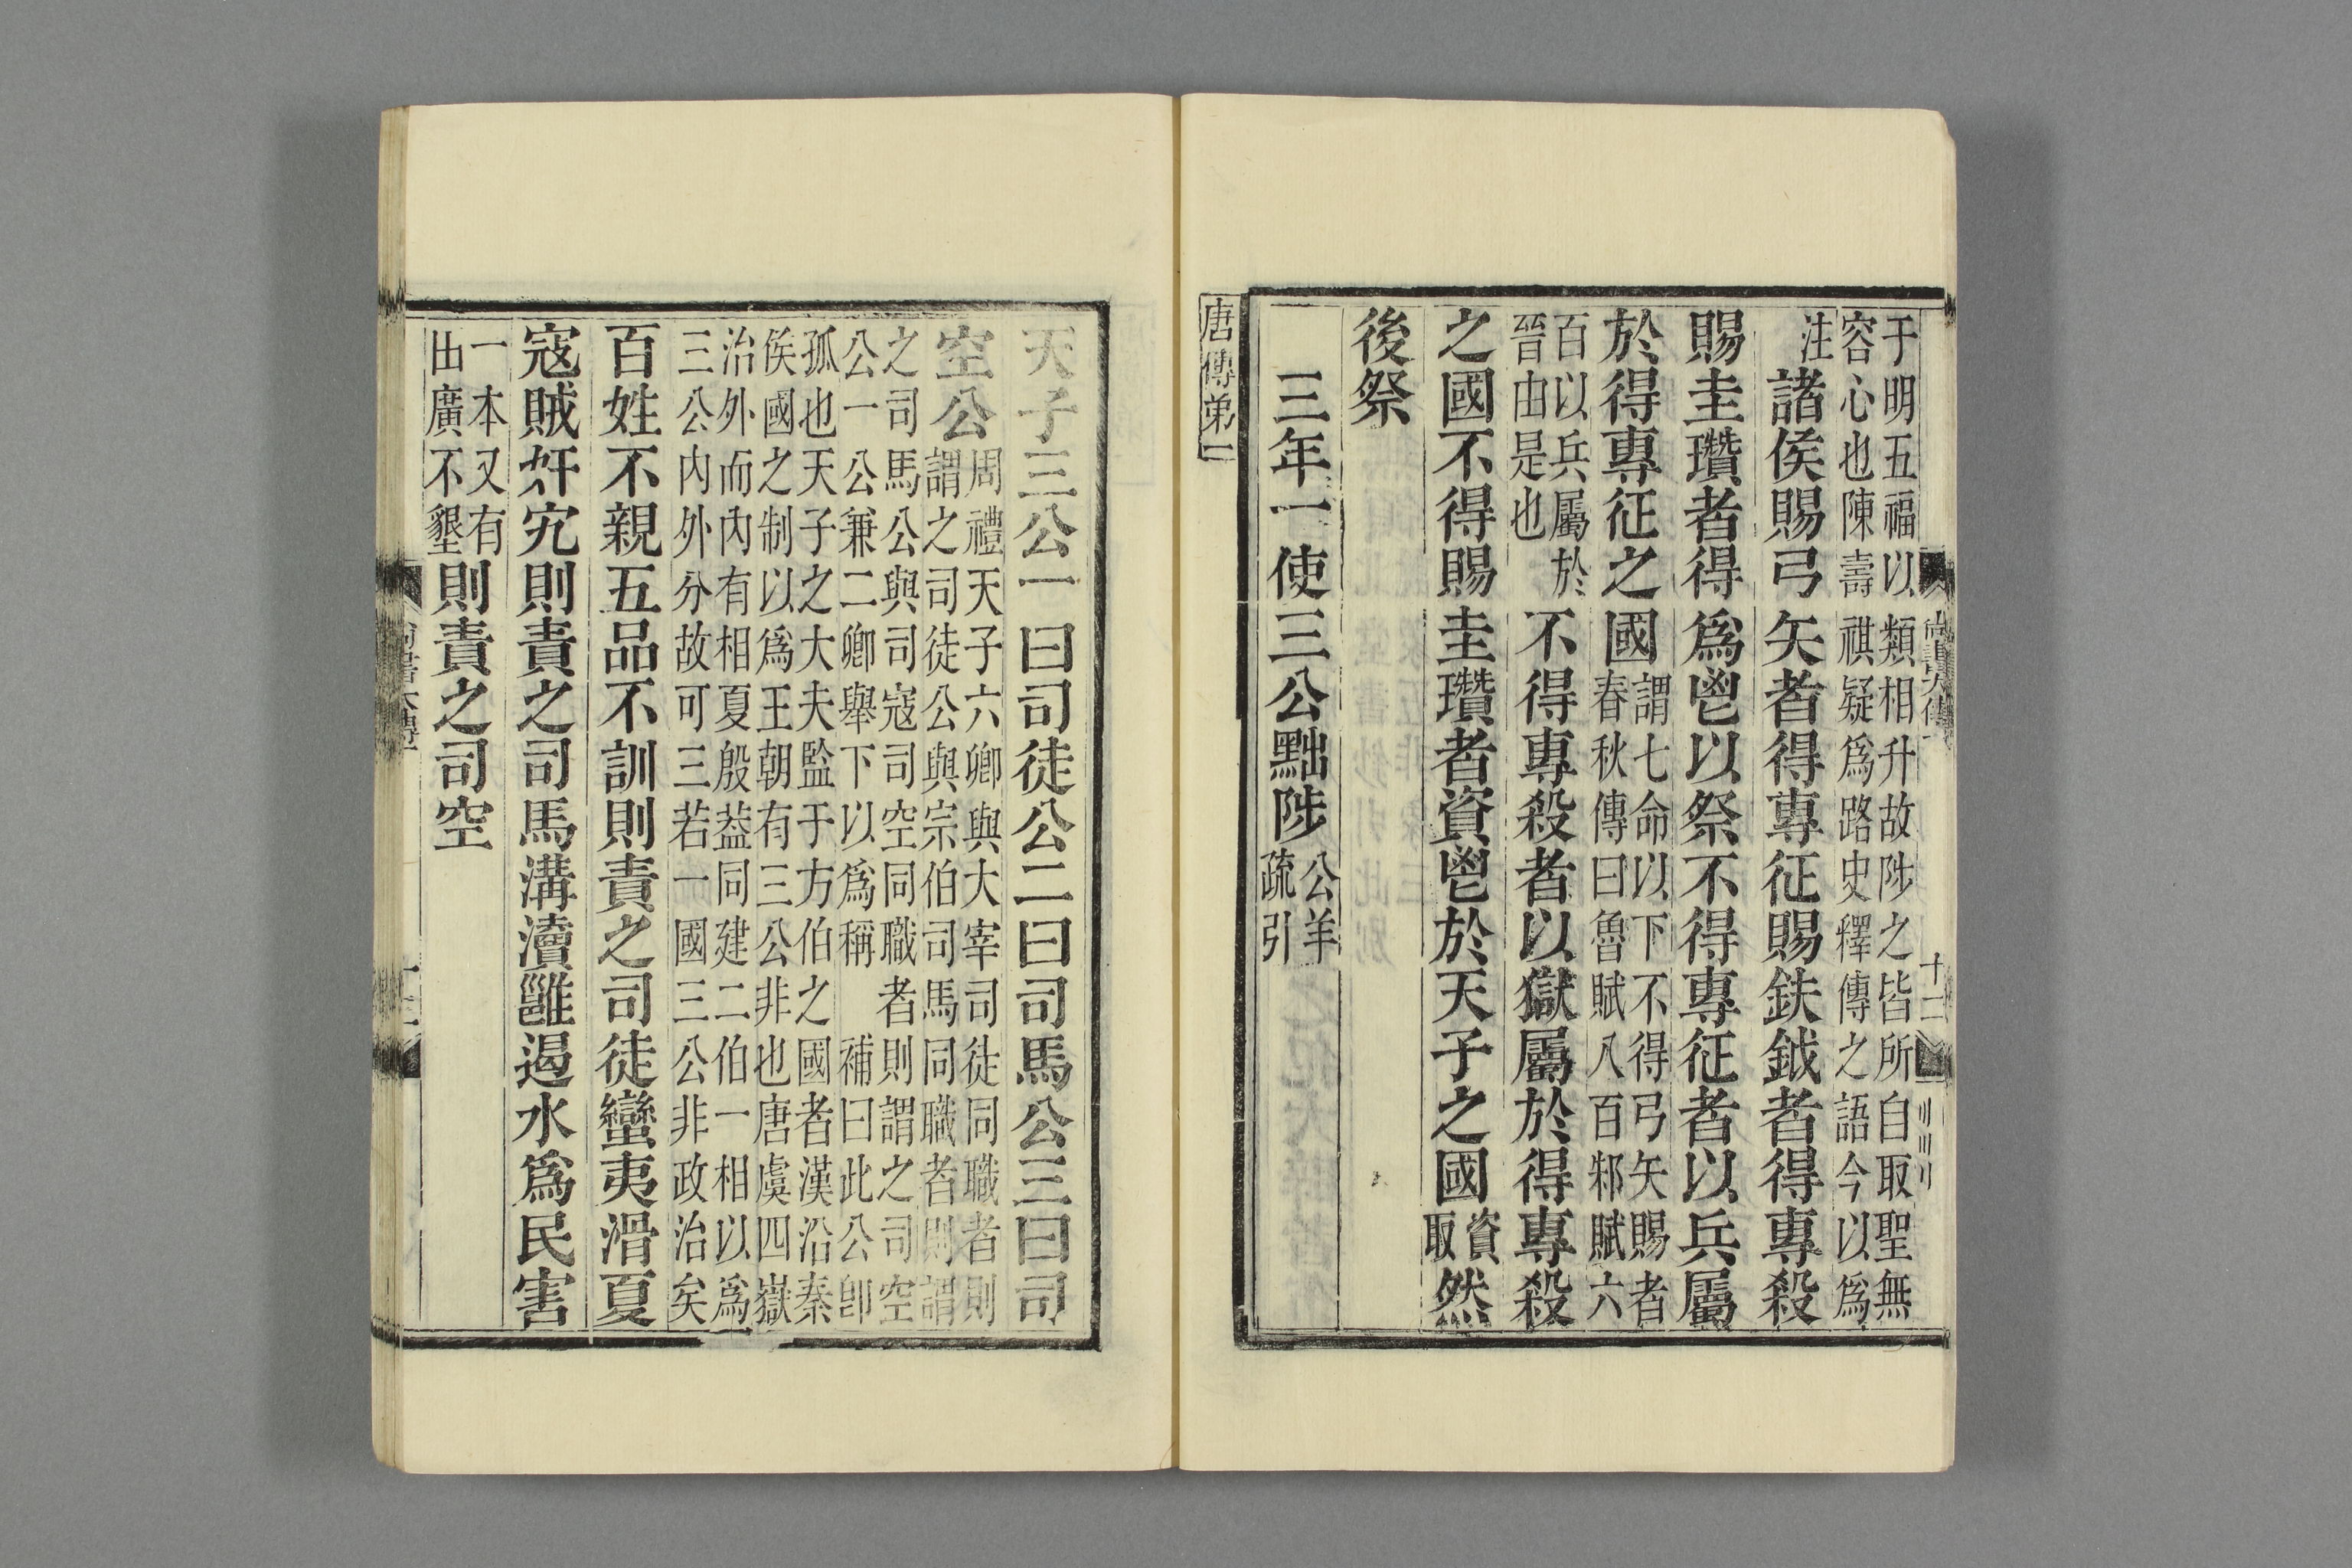 于明五福以類相升故陟之皆所自取聖無
容心也陳壽祺疑爲路史釋傳之語今以爲
注
諸侯賜弓矢者得專征賜鈇鉞者得專殺
賜圭瓚者得爲鬯以祭不得專征者以兵屬
於得專征之國
謂七命以下不得弓矢賜者
春秋傳曰魯賦八百邾賦六
百以兵屬於
晉由是也
不得專殺者以獄屬於得專殺
之國不得賜圭瓚者資鬯於天子之國
資
取
然
後祭
三年一使三公黜陟
公羊
疏引
唐傳弟一
尚書大傳一
十二
天子三公一曰司徒公二曰司馬公三曰司
空公
周禮天子六卿與大宰司徒同職者則
謂之司徒公與宗伯司馬同職者則謂
之司馬公與司寇司空同職者則謂之司空
公一公兼二卿舉下以爲稱 補曰此公卽
孤也天子之大夫監于方伯之國者漢沿秦
侯國之制以爲王朝有三公非也唐虞四嶽
治外而內有相夏殷葢同建二伯一相以爲
三公內外分故可三若一國三公非政治矣
百姓不親五品不訓則責之司徒蠻夷滑夏
寇賊奸宄則責之司馬溝瀆雝遏水爲民害
一本又有
出廣不墾
則責之司空